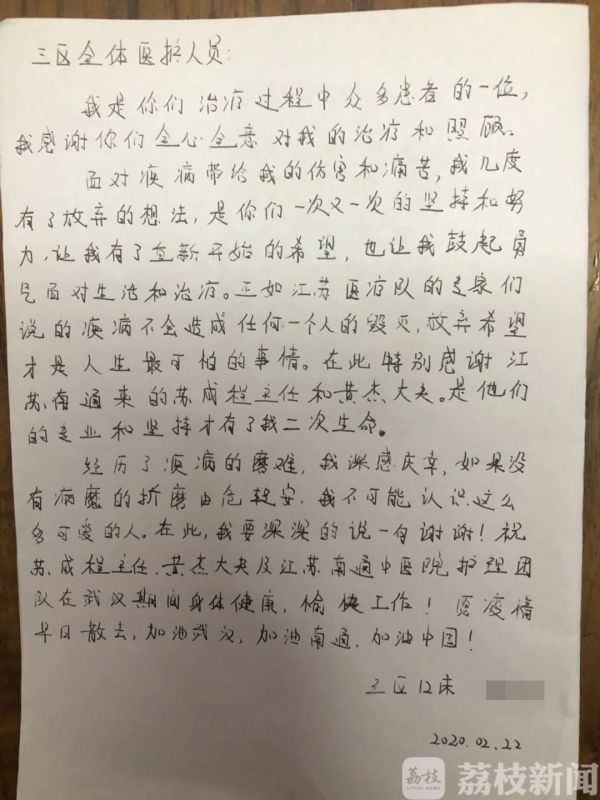 三区全体医护人员:
我是你们治疗过程中众多患者的一位,
我感谢你们全心全意对我的治疗和照顾。
面对疾病带给我的伤害和痛苦,我几度
有了放弃的想法,是你们一次又一次的坚持和努
力,让我有了重新开始的希望,也让我鼓起勇
气面对生活和治疗。正如江苏医疗队的专家们
说的疾病不会造成任何一个人的毁灭,放弃希望
才是人生最可怕的事情。在此特别感谢江
苏南通来的苏成程主任和黄杰大夫。是他们
的专业和坚持才有了我二次生命。
经历了疾病的磨难,我深感庆幸,如果没
有病魔的折磨由危转安,我不可能认识这么
多可爱的人。在此,我要深深的说一句谢谢!祝
苏成程主任、黄杰大夫及江苏南通中医院护理团
队在武汉期间身体健康,愉快工作!愿疫情
早日散去,加油武汉,加油南通,加油中国!
三区12床
2020.02.22
荔枝
LITCHI NEWS
荔枝新闻